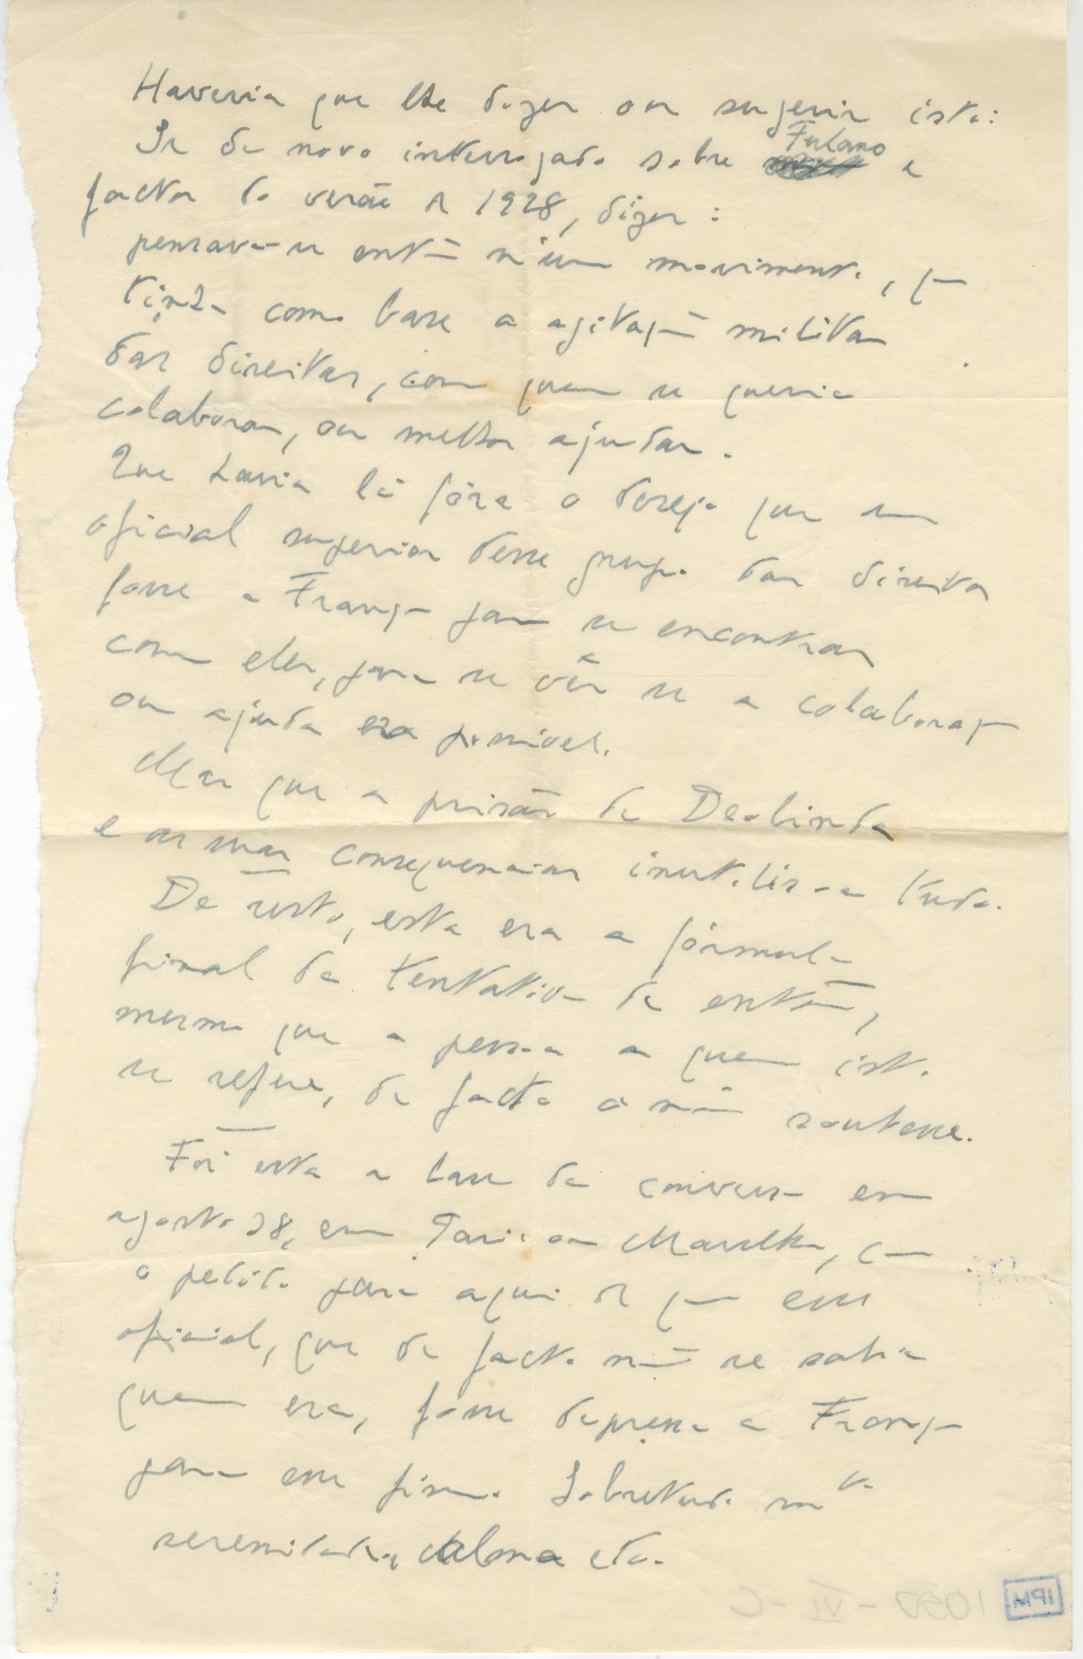 Haveria que lhe dizer ou sugerir isto:
Se de novo interrogado sobre Fulano e
factos do verão de 1928, dizer:
pensava-se então n'um movimento, que
tinha como base a agitação militar
das direitas, com quem se queria
colaborar, ou melhor ajudar.
Que havia lá fóra o desejo que um
oficial superior desse grupo das direitas
fosse a França para se encontrar
com eles, para se vêr se a colaboração
ou ajuda era possivel.
Mas que a prisão de Deolinda
e as suas consequencias inutilisou tudo.
De resto, esta era a fórmula
final da tentativa de então,
mesmo que a pessoa a quem isto
se refere, de facto o não soubesse.
Foi esta a base da conversa em
agosto 28, em Paris ou Marselha, com
o pedido para aqui de que esse
oficial, que de facto não se sabia
quem era, fosse depressa a França
para esse fim. Sobretudo mta
serenidade, calma etc.
1050-VI-C
IPM